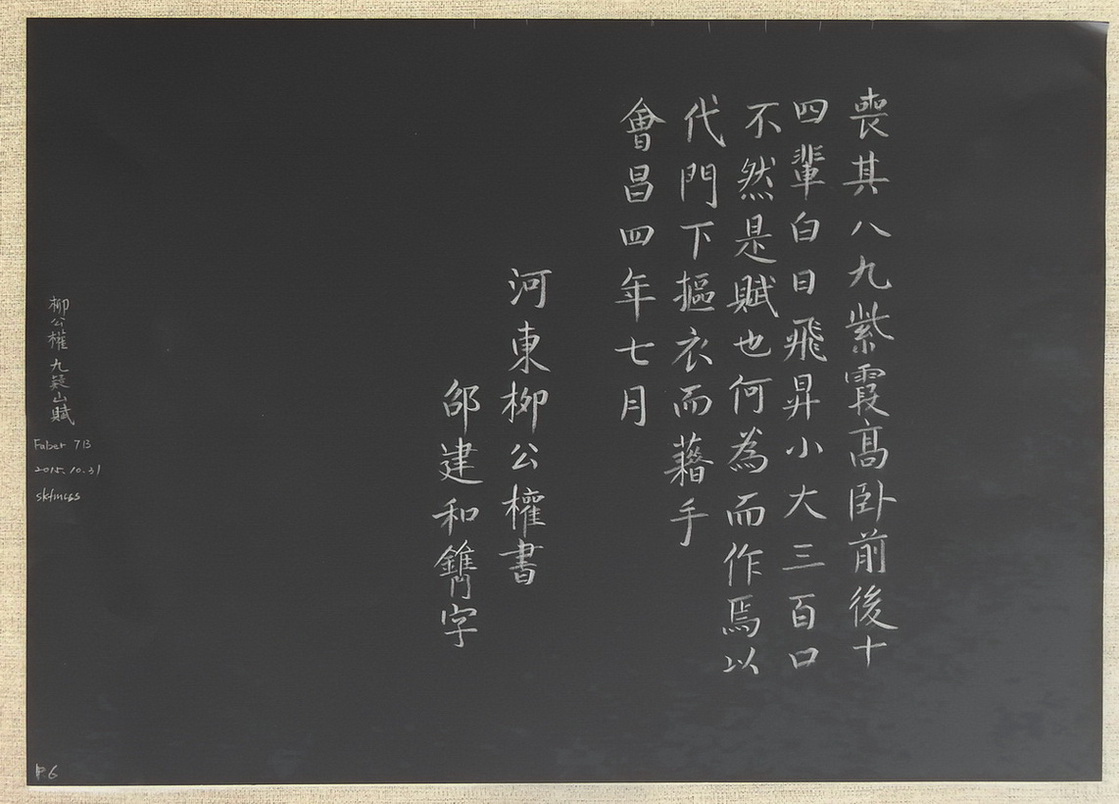 喪其八九紫霞高臥前後十
四輩白日飛昇小大三百口
不然是賦也何為而作焉以
代門下摳衣而藉手
會昌四年七月
河東柳公權書
邵建和鐫字
柳公權 九疑山賦
Faber 7B
2015.10.31
sktmcss
P.6